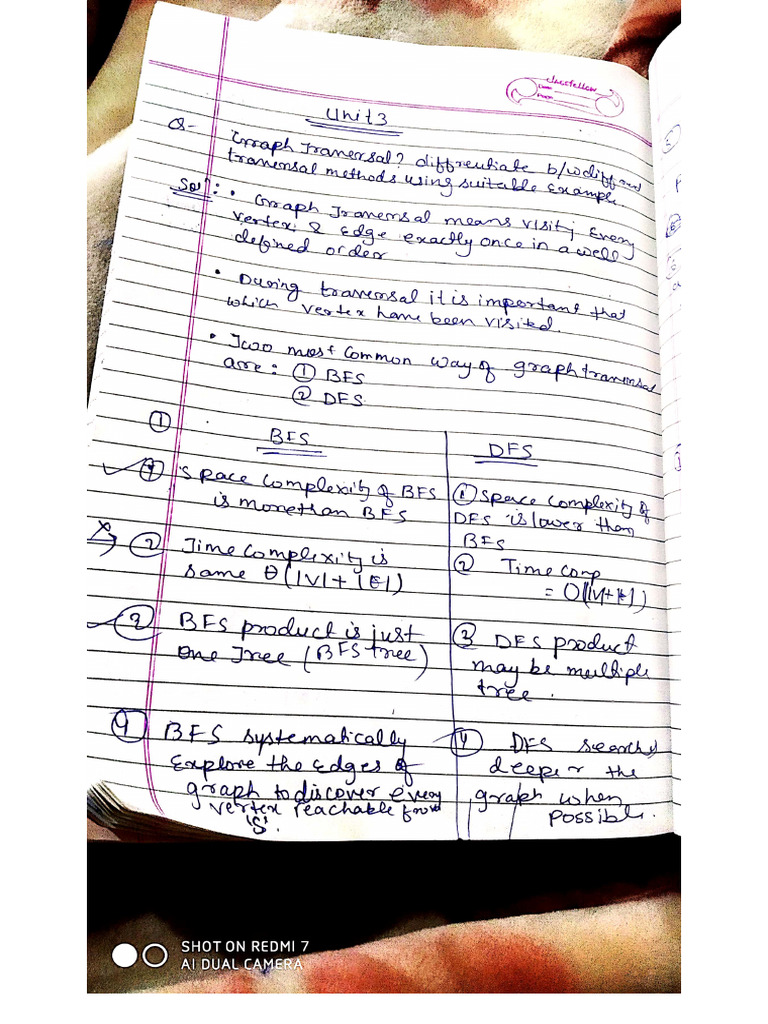 classfellow
Date
Page
Unit 3
Q- Graph Traversal? differentiate b/w different
traversal methods using suitable example.
Sol?: • Graph Traversal means visitj Every
vertex & Edge exactly once in a well
defined order
• During traversal it is important that
which vertex have been visited.
• Two most common way of graph traversal
are: ① BFS
② DFS
①
BFS
① space complexity of BFS
is morethan BFS
② Time complexity is
same θ(|V|+|E|)
② BFS product is just
One Tree (BFS tree)
④ BFS systematically
Explore the Edges of
graph to discover every
vertex reachable from
'S'.
DFS
① Space Complexity of
DFS is lower than
BFS
② Time comp
= O(|V|+|E|)
③ DFS product
may be multiple
tree.
④ DFS searchs
deeper the
graph when
possible.
SHOT ON REDMI 7
AI DUAL CAMERA